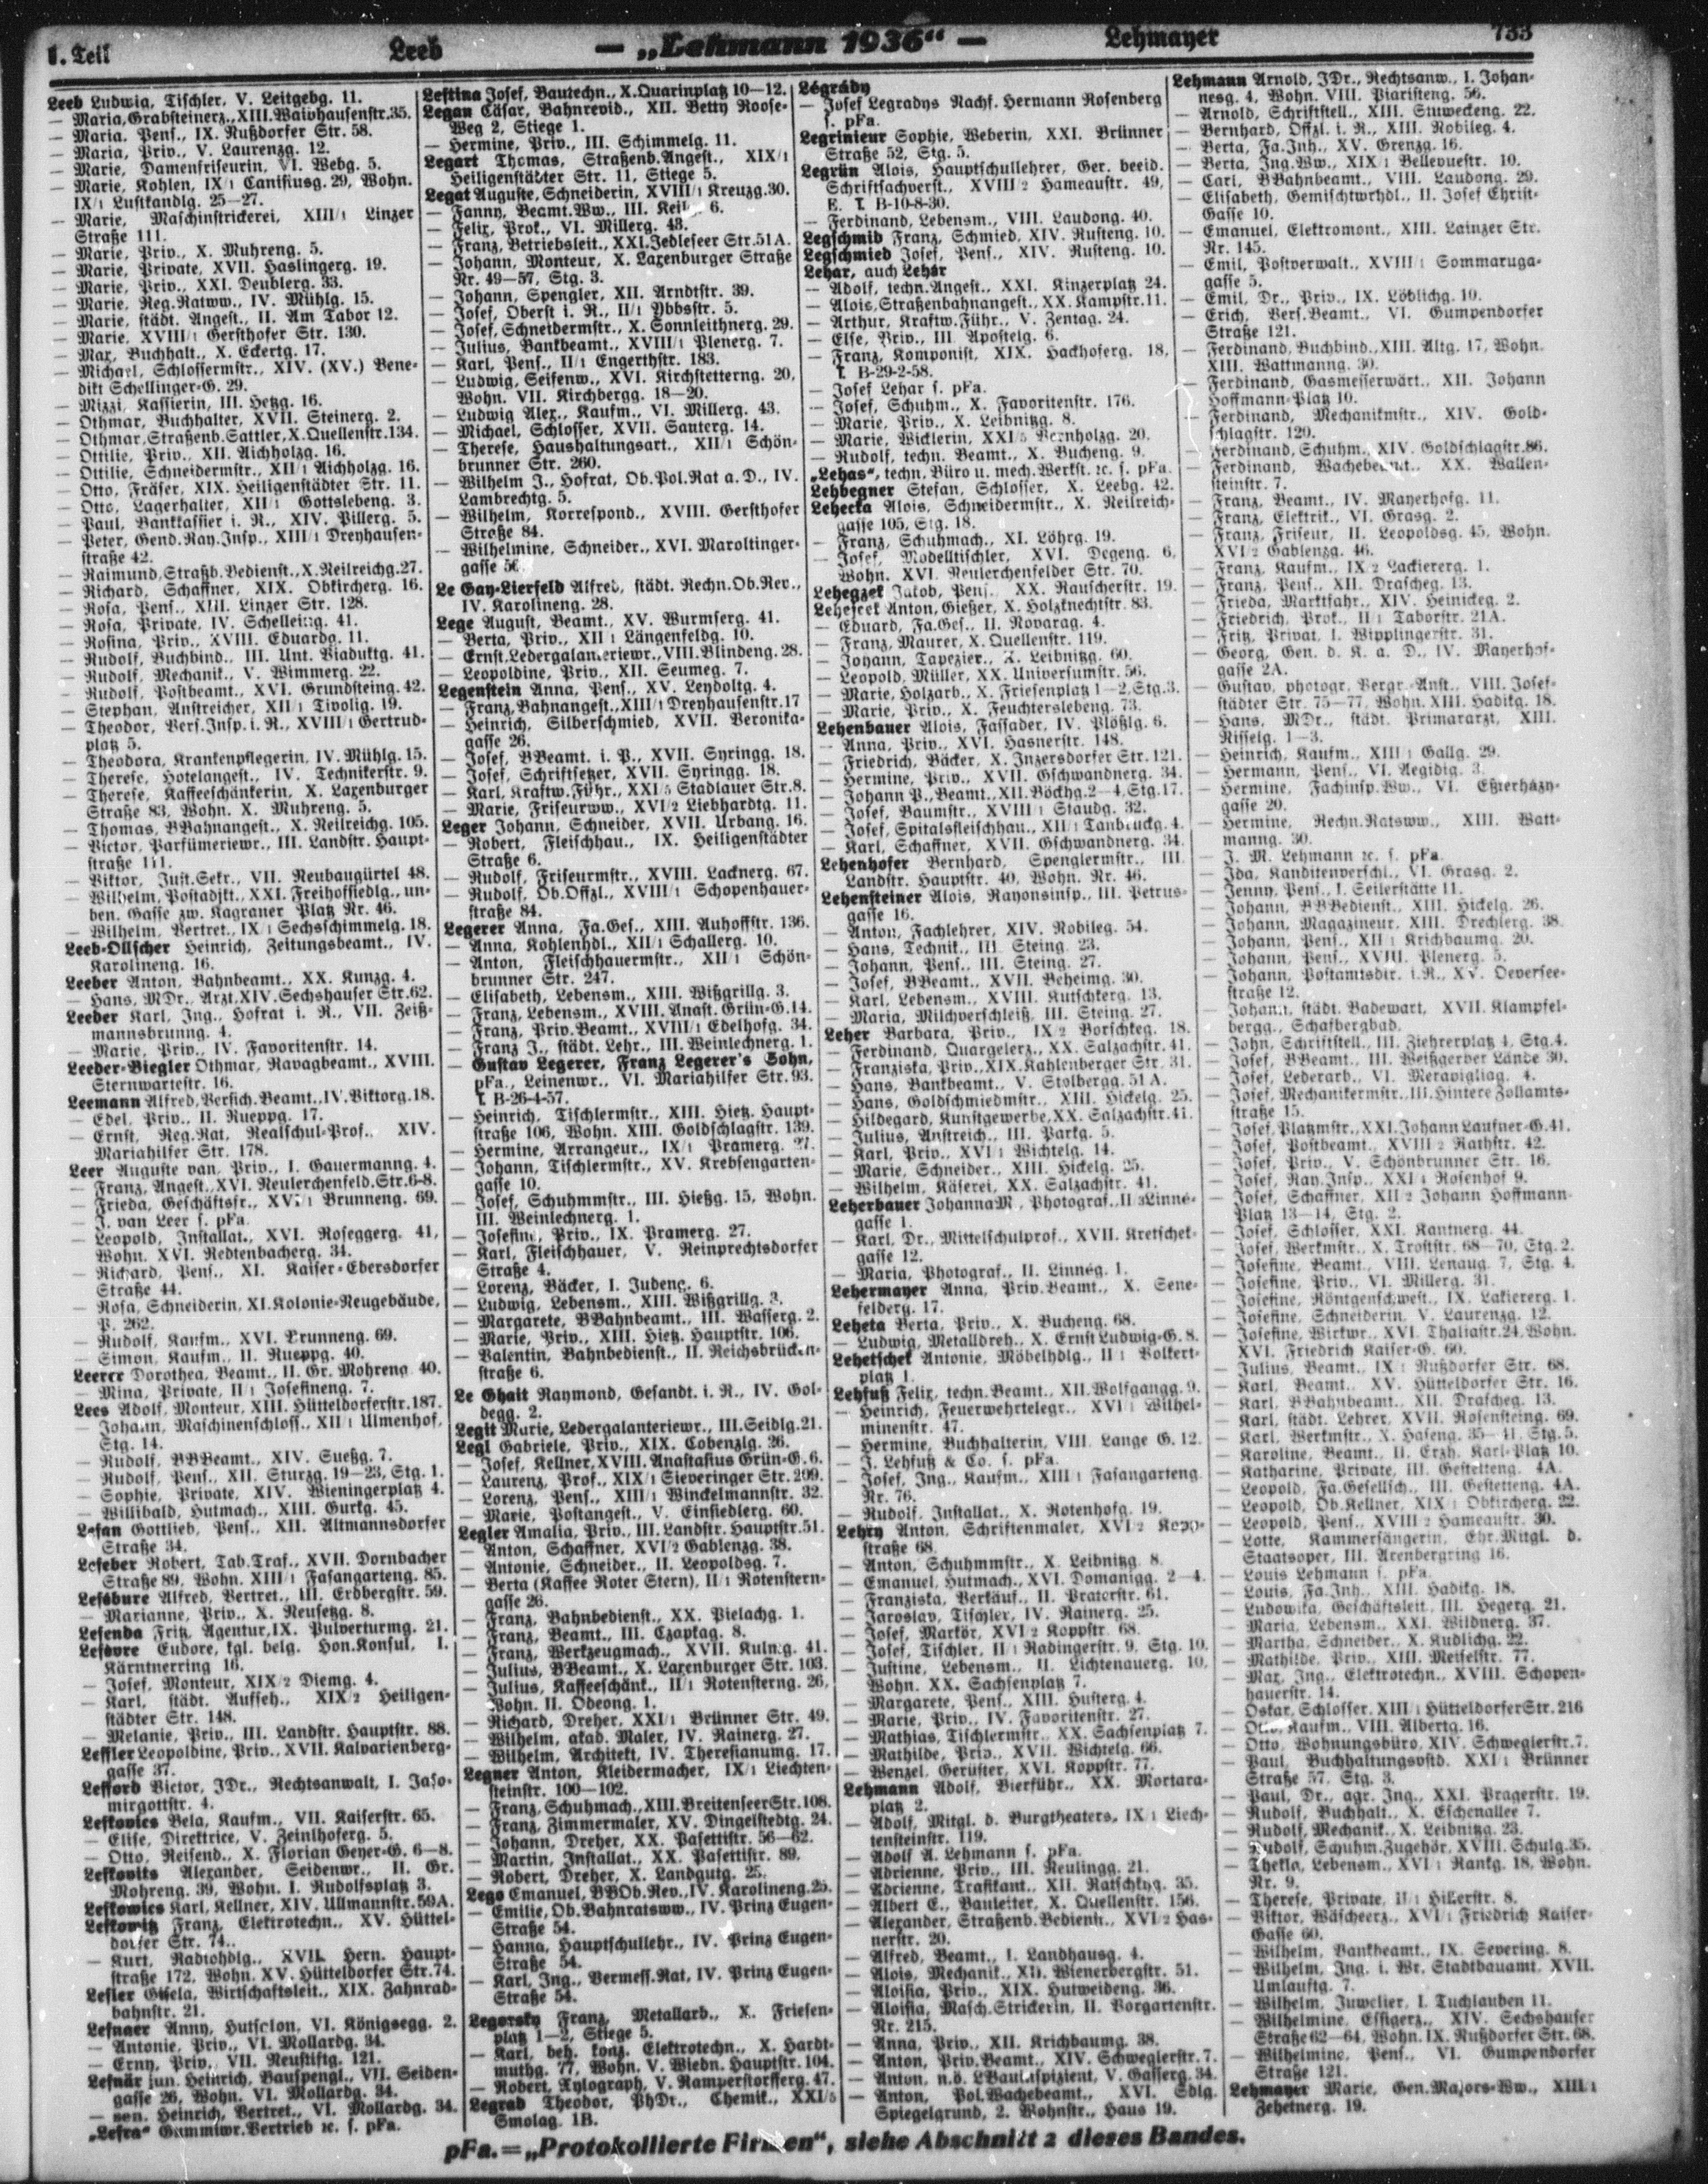 1. Teil
Leeb
— „Lehmann 1936“ —
Lehmayer
733
Leeb Ludwig, Tischler, V. Leitgebg. 11.
— Maria, Grabsteinerz., XIII. Waidhausenstr. 35.
— Maria, Pens., IX. Nußdorfer Str. 58.
— Maria, Priv., V. Laurenzg. 12.
— Marie, Damenfriseurin, VI. Webg. 5.
— Marie, Kohlen, IX/1 Canisiusg. 29, Wohn.
IX/1 Lustkandlg. 25—27.
— Marie, Maschinstrickerei, XIII/1 Linzer
Straße 111.
— Marie, Priv., X. Muhreng. 5.
— Marie, Private, XVII. Haslingerg. 19.
— Marie, Priv., XXI. Deublerg. 33.
— Marie, Reg.Ratww., IV. Mühlg. 15.
— Marie, städt. Angest., II. Am Tabor 12.
— Marie, XVIII/1 Gersthofer Str. 130.
— Max, Buchhalt., X. Eckertg. 17.
— Michael, Schlossermstr., XIV. (XV.) Bene-
dikt Schellinger-G. 29.
— Mizzi, Kassierin, III. Hetzg. 16.
— Othmar, Buchhalter, XVII. Steinerg. 2.
— Othmar, Straßenb.Sattler, X. Quellenstr. 134.
— Ottilie, Priv., XII. Aichholzg. 16.
— Ottilie, Schneidermstr., XII/1 Aichholzg. 16.
— Otto, Fräser, XIX. Heiligenstädter Str. 11.
— Otto, Lagerhalter, XII/1 Gottslebeng. 3.
— Paul, Bankkassier i. R., XIV. Pillerg. 5.
— Peter, Gend.Ray.Insp., XIII/1 Dreyhausen-
straße 42.
— Raimund, Straßb.Bedienst., X. Neilreichg. 27.
— Richard, Schaffner, XIX. Obkircherg. 16.
— Rosa, Pens., XIII. Linzer Str. 128.
— Rosa, Private, IV. Schelleing. 41.
— Rosina, Priv., XVIII. Eduardg. 11.
— Rudolf, Buchbind., III. Unt. Viaduktg. 41.
— Rudolf, Mechanik., V. Wimmerg. 22.
— Rudolf, Postbeamt., XVI. Grundsteing. 42.
— Stephan, Anstreicher, XII/1 Tivolig. 19.
— Theodor, Vers.Insp. i. R., XVIII/1 Gertrud-
platz 5.
— Theodora, Krankenpflegerin, IV. Mühlg. 15.
— Therese, Hotelangest., IV. Technikerstr. 9.
— Therese, Kaffeeschänkerin, X. Laxenburger
Straße 83, Wohn. X. Muhreng. 5.
— Thomas, BBahnangest., X. Neilreichg. 105.
— Victor, Parfümeriewr., III. Landstr. Haupt-
straße 111.
— Viktor, Just.Sekr., VII. Neubaugürtel 48.
— Wilhelm, Postadjkt., XXI. Freihofsiedlg., un-
ben. Gasse zw. Kagraner Platz Nr. 46.
— Wilhelm, Vertret., IX/1 Sechsschimmelg. 18.
Leeb-Ollscher Heinrich, Zeitungsbeamt., IV.
Karolineng. 16.
Leeber Anton, Bahnbeamt., XX. Kunzg. 4.
— Hans, MDr., Arzt, XIV. Sechshauser Str. 62.
Leeder Karl, Ing., Hofrat i. R., VII. Zeiß-
mannsbrunng. 4.
— Marie, Priv., IV. Favoritenstr. 14.
Leeder-Biegler Othmar, Ravagbeamt., XVIII.
Sternwartestr. 16.
Leemann Alfred, Versich.Beamt., IV. Viktorg. 18.
— Edel, Priv., II. Rueppg. 17.
— Ernst, Reg.Rat, Realschul-Prof., XIV.
Mariahilfer Str. 178.
Leer Auguste van, Priv., I. Gauermanng. 4.
— Franz, Angest., XVI. Neulerchenfeld. Str. 6-8.
— Frieda, Geschäftsfr., XVI/1 Brunneng. 69.
— J. van Leer s. pFa.
— Leopold, Installat., XVI. Roseggerg. 41,
Wohn. XVI. Redtenbacherg. 34.
— Richard, Pens., XI. Kaiser-Ebersdorfer
Straße 44.
— Rosa, Schneiderin, XI. Kolonie-Neugebäude,
P. 262.
— Rudolf, Kaufm., XVI. Brunneng. 69.
— Simon, Kaufm., II. Rueppg. 40.
Leerer Dorothea, Beamt., II. Gr. Mohreng. 40.
— Mina, Private, II/1 Josefineng. 7.
Lees Adolf, Monteur, XIII. Hütteldorferstr. 187.
— Johann, Maschinenschloss., XII/1 Ulmenhof,
Stg. 14.
— Rudolf, BBBeamt., XIV. Sueßg. 7.
— Rudolf, Pens., XII. Sturzg. 19—23, Stg. 1.
— Sophie, Private, XIV. Wieningerplatz 4.
— Willibald, Hutmach., XIII. Gurkg. 45.
Lefan Gottlieb, Pens., XII. Altmannsdorfer
Straße 34.
Lefeber Robert, Tab.Traf., XVII. Dornbacher
Straße 89, Wohn. XIII/1 Fasangarteng. 85.
Lefebure Alfred, Vertret., III. Erdbergstr. 59.
— Marianne, Priv., X. Neusetzg. 8.
Lefenda Fritz, Agentur, IX. Pulverturmg. 21.
Lefevre Eudore, kgl. belg. Hon.Konsul, I.
Kärntnerring 16.
— Josef, Monteur, XIX/2 Diemg. 4.
— Karl, städt. Aufseh., XIX/2 Heiligen-
städter Str. 148.
— Melanie, Priv., III. Landstr. Hauptstr. 88.
Leffler Leopoldine, Priv., XVII. Kalvarienberg-
gasse 37.
Lefford Victor, JDr., Rechtsanwalt, I. Jaso-
mirgottstr. 4.
Lefkovics Bela, Kaufm., VII. Kaiserstr. 65.
— Elise, Direktrice, V. Zeinlhoferg. 5.
— Otto, Reisend., X. Florian Geyer-G. 6—8.
Lefkovits Alexander, Seidenwr., II. Gr.
Mohreng. 39, Wohn. I. Rudolfsplatz 3.
Lefkowics Karl, Kellner, XIV. Ullmannstr. 59A.
Lefkowitz Franz, Elektrotechn., XV. Hüttel-
dorfer Str. 74.
— Kurt, Radiohdlg., XVII. Hern. Haupt-
straße 172, Wohn. XV. Hütteldorfer Str. 74.
Lefler Gisela, Wirtschaftsleit., XIX. Zahnrad-
bahnstr. 21.
Lefnaer Anny, Hutsalon, VI. Königsegg. 2.
— Antonie, Priv., VI. Mollardg. 34.
— Erny, Priv., VII. Neustiftg. 121.
Lefnär jun. Heinrich, Bauspengl., VII. Seiden-
gasse 26, Wohn. VI. Mollardg. 34.
— sen. Heinrich, Vertret., VI. Mollardg. 34.
„Lefra“ Gummiwr.Vertrieb ꝛc. s. pFa.
Leftina Josef, Bautechn., X. Quarinplatz 10—12.
Legan Cäsar, Bahnrevid., XII. Betty Roose-
Weg 2, Stiege 1.
— Hermine, Priv., III. Schimmelg. 11.
Legart Thomas, Straßenb.Angest., XIX/1
Heiligenstädter Str. 11, Stiege 5.
Legat Auguste, Schneiderin, XVIII/1 Kreuzg. 30.
— Fanny, Beamt.Ww., III. 6.
— Felix, Prok., VI. Millerg. 43.
— Franz, Betriebsleit., XXI. Jedleseer Str. 51A.
— Johann, Monteur, X. Laxenburger Straße
Nr. 49—57, Stg. 3.
— Johann, Spengler, XII. Arndtstr. 39.
— Josef, Oberst i. R., II/1 Ybbsstr. 5.
— Josef, Schneidermstr., X. Sonnleithnerg. 29.
— Julius, Bankbeamt., XVIII/1 Plenerg. 7.
— Karl, Pens., II/1 Engerthstr. 183.
— Ludwig, Seifenw., XVI. Kirchstetterng. 20,
Wohn. VII. Kirchbergg. 18—20.
— Ludwig Alex., Kaufm., VI. Millerg. 43.
— Michael, Schlosser, XVII. Sauterg. 14.
— Therese, Haushaltungsart., XII/1 Schön-
brunner Str. 260.
— Wilhelm J., Hofrat, Ob.Pol.Rat a. D., IV.
Lambrechtg. 5.
— Wilhelm, Korrespond., XVIII. Gersthofer
Straße 84.
— Wilhelmine, Schneider., XVI. Maroltinger-
gasse
Le Gay-Lierfeld Alfred, städt. Rechn.Ob.Rev.,
IV. Karolineng. 28.
Lege August, Beamt., XV. Wurmserg. 41.
— Berta, Priv., XII/1 Längenfeldg. 10.
— Ernst, Ledergalanteriewr., VIII. Blindeng. 28.
— Leopoldine, Priv., XII. Seumeg. 7.
Legenstein Anna, Pens., XV. Leydoltg. 4.
— Franz, Bahnangest., XIII/1 Dreyhausenstr. 17
— Heinrich, Silberschmied, XVII. Veronika-
gasse 26.
— Josef, BBeamt. i. P., XVII. Syringg. 18.
— Josef, Schriftsetzer, XVII. Syringg. 18.
— Karl, Kraftw.Führ., XXI/5 Stadlauer Str. 8.
— Marie, Friseurww., XVI/2 Liebhardtg. 11.
Leger Johann, Schneider, XVII. Urbang. 16.
— Robert, Fleischhau., IX. Heiligenstädter
Straße 6.
— Rudolf, Friseurmstr., XVIII. Lacknerg. 67.
— Rudolf, Ob.Offzl., XVIII/1 Schopenhauer-
straße 84.
Legerer Anna, Fa.Ges., XIII. Auhofstr. 136.
— Anna, Kohlenhdl., XII/1 Schallerg. 10.
— Anton, Fleischhauermstr., XII/1 Schön-
brunner Str. 247.
— Elisabeth, Lebensm., XIII. Wißgrillg. 3.
— Franz, Lebensm., XVIII. Anast. Grün-G. 14.
— Franz, Priv.Beamt., XVIII/1 Edelhofg. 34.
— Franz J., städt. Lehr., III. Weinlechnerg. 1.
— Gustav Legerer, Franz Legerer's Sohn,
pFa., Leinenwr., VI. Mariahilfer Str. 93.
T. B-26-4-57.
— Heinrich, Tischlermstr., XIII. Hietz. Haupt-
straße 106, Wohn. XIII. Goldschlagstr. 139.
— Hermine, Arrangeur., IX/1 Pramerg. 27.
— Johann, Tischlermstr., XV. Krebsengarten-
gasse 10.
— Josef, Schuhmmstr., III. Hießg. 15, Wohn.
III. Weinlechnerg. 1.
— Josefine, Priv., IX. Pramerg. 27.
— Karl, Fleischhauer, V. Reinprechtsdorfer
Straße 4.
— Lorenz, Bäcker, I. Judeng. 6.
— Ludwig, Lebensm., XIII. Wißgrillg. 3.
— Margarete, BBahnbeamt., III. Wasserg. 2.
— Marie, Priv., XIII. Hietz. Hauptstr. 106.
— Valentin, Bahnbedienst., II. Reichsbrücken-
straße 6.
Le Ghait Raymond, Gesandt. i. R., IV. Gol-
degg. 2.
Legit Marie, Ledergalanteriewr., III. Seidlg. 21.
Legl Gabriele, Priv., XIX. Cobenzlg. 26.
— Josef, Kellner, XVIII. Anastasius Grün-G. 6.
— Laurenz, Prof., XIX/1 Sieveringer Str. 209.
— Lorenz, Pens., XIII/1 Winckelmannstr. 32.
— Marie, Postangest., V. Einsiedlerg. 60.
Legler Amalia, Priv., III. Landstr. Hauptstr. 51.
— Anton, Schaffner, XVI/2 Gablenzg. 38.
— Antonie, Schneider., II. Leopoldsg. 7.
— Berta (Kaffee Roter Stern), II/1 Rotenstern-
gasse 26.
— Franz, Bahnbedienst., XX. Pielachg. 1.
— Franz, Beamt., III. Czapkag. 8.
— Franz, Werkzeugmach., XVII. Kulmg. 41.
— Julius, BBeamt., X. Laxenburger Str. 103.
— Julius, Kaffeeschänk., II/1 Rotensterng. 26,
Wohn. II. Odeong. 1.
— Richard, Dreher, XXI/1 Brünner Str. 49.
— Wilhelm, akad. Maler, IV. Rainerg. 27.
— Wilhelm, Architekt, IV. Theresianumg. 17.
Legner Anton, Kleidermacher, IX/1 Liechten-
steinstr. 100—102.
— Franz, Schuhmach., XIII. Breitenseer Str. 108.
— Franz, Zimmermaler, XV. Dingelstedtg. 24.
— Johann, Dreher, XX. Pasettistr. 56—62.
— Martin, Installat., XX. Pasettistr. 89.
— Robert, Dreher, X. Landgutg. 25.
Lego Emanuel, BBOb.Rev., IV. Karolineng. 25.
— Emilie, Ob.Bahnratsww., IV. Prinz Eugen-
Straße 54.
— Hanna, Hauptschullehr., IV. Prinz Eugen-
Straße 54.
— Karl, Ing., Vermess.Rat, IV. Prinz Eugen-
Straße 54.
Legorsky Franz, Metallarb., X. Friesen-
platz 1—2, Stiege 5.
— Karl, beh. konz. Elektrotechn., X. Hardt-
muthg. 77, Wohn. V. Wiedn. Hauptstr. 104.
— Robert, Xylograph, V. Ramperstorfferg. 47.
Legrad Theodor, PhDr., Chemik., XXI/5
Smolag. 1B.
Légrády
— Josef Legradys Nachf. Hermann Rosenberg
s. pFa.
Legrinieur Sophie, Weberin, XXI. Brünner
Straße 52, Stg. 5.
Legrün Alois, Hauptschullehrer, Ger. beeid.
Schriftsachverst., XVIII/2 Hameaustr. 49,
E. T. B-10-8-30.
— Ferdinand, Lebensm., VIII. Laudong. 40.
Legschmid Franz, Schmied, XIV. Rusteng. 10.
Legschmied Josef, Pens., XIV. Rusteng. 10.
Lehar, auch Lehár
— Adolf, techn.Angest., XXI. Kinzerplatz 24.
— Alois, Straßenbahnangest., XX. Kampstr. 11.
— Arthur, Kraftw.Führ., V. Zentag. 24.
— Else, Priv., III. Apostelg. 6.
— Franz, Komponist, XIX. Hackhoferg. 18,
T. B-29-2-58.
— Josef Lehar s. pFa.
— Josef, Schuhm., X. Favoritenstr. 176.
— Marie, Priv., X. Leibnitzg. 8.
— Marie, Wicklerin, XXI/5 Bernholzg. 20.
— Rudolf, techn. Beamt., X. Bucheng. 9.
„Lehas“, techn. Büro u. mech.Werkst. ꝛc. s. pFa.
Lehbegner Stefan, Schlosser, X. Leebg. 42.
Lehecka Alois, Schneidermstr., X. Neilreich-
gasse 105, Stg. 18.
— Franz, Schuhmach., XI. Löhrg. 19.
— Josef, Modelltischler, XVI. Degeng. 6,
Wohn. XVI. Neulerchenfelder Str. 70.
Lehegzek Jakob, Pens., XX. Rauscherstr. 19.
Lehejcek Anton, Gießer, X. Holzknechtstr. 83.
— Eduard, Fa.Ges., II. Novarag. 4.
— Franz, Maurer, X. Quellenstr. 119.
— Johann, Tapezier., X. Leibnitzg. 60.
— Leopold, Müller, XX. Universumstr. 56.
— Marie, Holzarb., X. Friesenplatz 1—2, Stg. 3.
— Marie, Priv., X. Feuchterslebeng. 73.
Lehenbauer Alois, Fassader, IV. Plößlg. 6.
— Anna, Priv., XVI. Hasnerstr. 148.
— Friedrich, Bäcker, X. Inzersdorfer Str. 121.
— Hermine, Priv., XVII. Gschwandnerg. 34.
— Johann P., Beamt., XII. Böckhg. 2—4, Stg. 17.
— Josef, Baumstr., XVIII/1 Staudg. 32.
— Josef, Spitalsfleischhau., XII/1 Tanbruckg. 4.
— Karl, Schaffner, XVII. Gschwandnerg. 34.
Lehenhofer Bernhard, Spenglermstr., III.
Landstr. Hauptstr. 40, Wohn. Nr. 46.
Lehensteiner Alois, Rayonsinsp., III. Petrus-
gasse 16.
— Anton, Fachlehrer, XIV. Nobileg. 54.
— Hans, Technik., III. Steing. 23.
— Johann, Pens., III. Steing. 27.
— Josef, BBeamt., XVII. Beheimg. 30.
— Karl, Lebensm., XVIII. Kutschkerg. 13.
— Maria, Milchverschleiß, III. Steing. 27.
Leher Barbara, Priv., IX/2 Borschkeg. 18.
— Ferdinand, Quargelerz., XX. Salzachstr. 41.
— Franziska, Priv., XIX. Kahlenberger Str. 31.
— Hans, Bankbeamt., V. Stolbergg. 51 A.
— Hans, Goldschmiedmstr., XIII. Hickelg. 25.
— Hildegard, Kunstgewerbe, XX. Salzachstr. 41.
— Julius, Anstreich., III. Parkg. 5.
— Karl, Priv., XVI/1 Wichtelg. 14.
— Marie, Schneider., XIII. Hickelg. 25.
— Wilhelm, Käserei, XX. Salzachstr. 41.
Leherbauer Johanna M., Photograf., II/2 Linné-
gasse 1.
— Karl, Dr., Mittelschulprof., XVII. Kretschek-
gasse 12.
— Maria, Photograf., II. Linnég. 1.
Lehermayer Anna, Priv.Beamt., X. Sene-
felderg. 17.
Leheta Berta, Priv., X. Bucheng. 68.
— Ludwig, Metalldreh., X. Ernst Ludwig-G. 8.
Lehetschek Antonie, Möbelhdlg., II/1 Volkert-
platz 1.
Lehfuß Felix, techn.Beamt., XII. Wolfgangg. 9.
— Heinrich, Feuerwehrtelegr., XVI/1 Wilhel-
minenstr. 47.
— Hermine, Buchhalterin, VIII. Lange G. 12.
— J. Lehfuß & Co. s. pFa.
— Josef, Ing., Kaufm., XIII/1 Fasangarteng.
Nr. 76.
— Rudolf, Installat., X. Rotenhofg. 19.
Lehky Anton, Schriftenmaler, XVI/2 Kopp-
straße 68.
— Anton, Schuhmmstr., X. Leibnitzg. 8.
— Emanuel, Hutmach., XVI. Domanigg. 2—4.
— Franziska, Verkäuf., II. Praterstr. 61.
— Jaroslav, Tischler, IV. Rainerg. 25.
— Josef, Markör, XVI/2 Koppstr. 68.
— Josef, Tischler, II/1 Radingerstr. 9, Stg. 10.
— Justine, Lebensm., II. Lichtenauerg. 10,
Wohn. XX. Sachsenplatz 7.
— Margarete, Pens., XIII. Husterg. 4.
— Marie, Priv., IV. Favoritenstr. 27.
— Mathias, Tischlermstr., XX. Sachsenplatz 7.
— Mathilde, Priv., XVII. Wichtelg. 66.
— Wenzel, Gerüster, XVI. Koppstr. 77.
Lehmann Adolf, Bierführ., XX. Mortara-
platz 2.
— Adolf, Mitgl. d. Burgtheaters, IX/1 Liech-
tensteinstr. 119.
— Adolf A. Lehmann s. pFa.
— Adrienne, Priv., III. Reulingg. 21.
— Adrienne, Trafikant., XII. Ratschkyg. 35.
— Albert E., Bauleiter, X. Quellenstr. 156.
— Alexander, Straßenb.Bedienst., XVI/2 Has-
nerstr. 20.
— Alfred, Beamt., I. Landhausg. 4.
— Alois, Mechanik., XII. Wienerbergstr. 51.
— Aloisia, Priv., XIX. Hutweideng. 36.
— Aloisia, Masch.Strickerin, II. Vorgartenstr.
Nr. 215.
— Anna, Priv., XII. Krichbaumg. 38.
— Anton, Priv.Beamt., XIV. Schweglerstr. 7.
— Anton, n.ö. LBauinspizient, V. Gasserg. 34.
— Anton, Pol.Wachebeamt., XVI. Sdlg.
Spiegelgrund, 2. Wohnstr., Haus 19.
Lehmann Arnold, JDr., Rechtsanw., I. Johan-
nesg. 4, Wohn. VIII. Piaristeng. 56.
— Arnold, Schriftstell., XIII. Stuweckeng. 22.
— Bernhard, Offzl. i. R., XIII. Nobileg. 4.
— Berta, Fa.Inh., XV. Grenzg. 16.
— Berta, Ing.Ww., XIX/1 Bellevuestr. 10.
— Carl, BBahnbeamt., VIII. Laudong. 29.
— Elisabeth, Gemischtwrhdl., II. Josef Christ-
Gasse 10.
— Emanuel, Elektromont., XIII. Lainzer Str.
Nr. 145.
— Emil, Postverwalt., XVIII/1 Sommaruga-
gasse 5.
— Emil, Dr., Priv., IX. Löblichg. 10.
— Erich, Vers.Beamt., VI. Gumpendorfer
Straße 121.
— Ferdinand, Buchbind., XIII. Altg. 17, Wohn.
XIII. Wattmanng. 30.
— Ferdinand, Gasmesserwärt., XII. Johann
Hoffmann-Platz 10.
— Ferdinand, Mechanikmstr., XIV. Gold-
schlagstr. 120.
— Ferdinand, Schuhm., XIV. Goldschlagstr. 86.
— Ferdinand, Wachebeamt., XX. Wallen-
steinstr. 7.
— Franz, Beamt., IV. Mayerhofg. 11.
— Franz, Elektrik., VI. Grasg. 2.
— Franz, Friseur, II. Leopoldsg. 45, Wohn.
XVI/2 Gablenzg. 46.
— Franz, Kaufm., IX/2 Lackiererg. 1.
— Franz, Pens., XII. Drascheg. 13.
— Frieda, Marktfahr., XIV. Heinickeg. 2.
— Friedrich, Prok., II/1 Taborstr. 21A.
— Fritz, Privat, I. Wipplingerstr. 31.
— Georg, Gen. d. K. a. D., IV. Mayerhof-
gasse 2A.
— Gustav, photogr. Vergr.-Anst., VIII. Josef-
städter Str. 75—77, Wohn. XIII. Hadikg. 18.
— Hans, MDr., städt. Primararzt, XIII.
Nisselg. 1—3.
— Heinrich, Kaufm., XIII/1 Gallg. 29.
— Hermann, Pens., VI. Aegidig. 3.
— Hermine, Fachinsp.Ww., VI. Eßterházy-
gasse 20.
— Hermine, Rechn.Ratsww., XIII. Watt-
manng. 30.
— J. M. Lehmann ꝛc. s. pFa.
— Ida, Kanditenverschl., VI. Grasg. 2.
— Jenny, Pens., I. Seilerstätte 11.
— Johann, BBBedienst., XIII. Hickelg. 26.
— Johann, Magazineur, XIII. Drechslerg. 38.
— Johann, Pens., XII/1 Krichbaumg. 20.
— Johann, Pens., XVIII. Plenerg. 5.
— Johann, Postamtsdir. i.R., XV. Oeversee-
straße 12.
— Johann, städt. Badewart, XVII. Klampfel-
bergg., Schafbergbad.
— John, Schriftstell., III. Ziehrerplatz 4, Stg. 4.
— Josef, BBeamt., III. Weißgerber Lände 30.
— Josef, Lederarb., VI. Meravigliag. 4.
— Josef, Mechanikermstr., III. Hintere Zollamts-
straße 15.
— Josef, Platzmstr., XXI. Johann Laufner-G. 41.
— Josef, Postbeamt., XVIII/2 Rathstr. 42.
— Josef, Priv., V. Schönbrunner Str. 16.
— Josef, Ray.Insp., XXI/1 Rosenhof 9.
— Josef, Schaffner, XII/2 Johann Hoffmann-
Platz 13—14, Stg. 2.
— Josef, Schlosser, XXI. Kantnerg. 44.
— Josef, Werkmstr., X. Troststr. 68—70, Stg. 2.
— Josefine, Beamt., VIII. Lenaug. 7, Stg. 4.
— Josefine, Priv., VI. Millerg. 31.
— Josefine, Röntgenschwest., IX. Lakiererg. 1.
— Josefine, Schneiderin, V. Laurenzg. 12.
— Josefine, Wirkwr., XVI. Thaliastr. 24, Wohn.
XVI. Friedrich Kaiser-G. 60.
— Julius, Beamt., IX/1 Nußdorfer Str. 68.
— Karl, Beamt., XV. Hütteldorfer Str. 16.
— Karl, BBahnbeamt., XII. Drascheg. 13.
— Karl, städt. Lehrer, XVII. Rosensteing. 69.
— Karl, Werkmstr., X. Haseng. 35—41, Stg. 5.
— Karoline, Beamt., II. Erzh. Karl-Platz 10.
— Katharine, Private, III. Gestetteng. 4A.
— Leopold, Fa.Gesellsch., III. Gestetteng. 4A.
— Leopold, Ob.Kellner, XIX/1 Obkircherg. 22.
— Leopold, Pens., XVIII/2 Hameaustr. 30.
— Lotte, Kammersängerin, Ehr.Mitgl. d.
Staatsoper, III. Arenbergring 16.
— Louis Lehmann s. pFa.
— Louis, Fa.Inh., XIII. Hadikg. 18.
— Ludowika, Geschäftsleit., III. Hegerg. 21.
— Maria, Lebensm., XXI. Wildnerg. 37.
— Martha, Schneider., X. Kudlichg. 22.
— Mathilde, Priv., XIII. Meiselstr. 77.
— Max, Ing., Elektrotechn., XVIII. Schopen-
hauerstr. 14.
— Oskar, Schlosser, XIII/1 Hütteldorfer Str. 216
— Otto, Kaufm., VIII. Albertg. 16.
— Otto, Wohnungsbüro, XIV. Schweglerstr. 7.
— Paul, Buchhaltungsvstd., XXI/1 Brünner
Straße 57, Stg. 3.
— Paul, Dr., agr. Ing., XXI. Pragerstr. 19.
— Rudolf, Buchhalt., X. Eschenallee 7.
— Rudolf, Mechanik., X. Leibnitzg. 23.
— Rudolf, Schuhm.Zugehör, XVIII. Schulg. 35.
— Thekla, Lebensm., XVI/1 Rankg. 18, Wohn.
Nr. 9.
— Therese, Private, II/1 Hillerstr. 8.
— Viktor, Wäscheerz., XVI/1 Friedrich Kaiser-
Gasse 60.
— Wilhelm, Bankbeamt., IX. Severing. 8.
— Wilhelm, Ing. i. Wr. Stadtbauamt, XVII.
Umlauftg. 7.
— Wilhelm, Juwelier, I. Tuchlauben 11.
— Wilhelmine, Essigerz., XIV. Sechshauser
Straße 62—64, Wohn. IX. Nußdorfer Str. 68.
— Wilhelmine, Pens., VI. Gumpendorfer
Straße 121.
Lehmayer Marie, Gen.Majors-Ww., XIII/1
Zehetnerg. 19.
pFa. = „Protokollierte Firmen“, siehe Abschnitt 2 dieses Bandes.